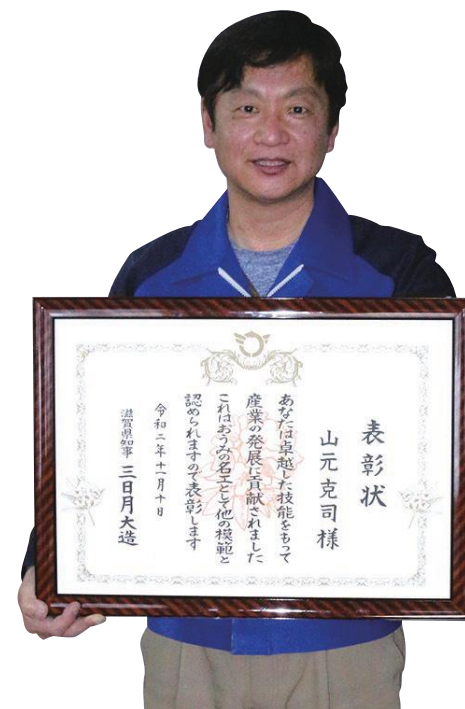 表彰状
山元克司様
あなたは卓越した技能をもって
産業の発展に貢献されました
これはおうみの名工として他の模範と
認められますので表彰します
令和二年十一月十日
滋賀県知事 三日月大造